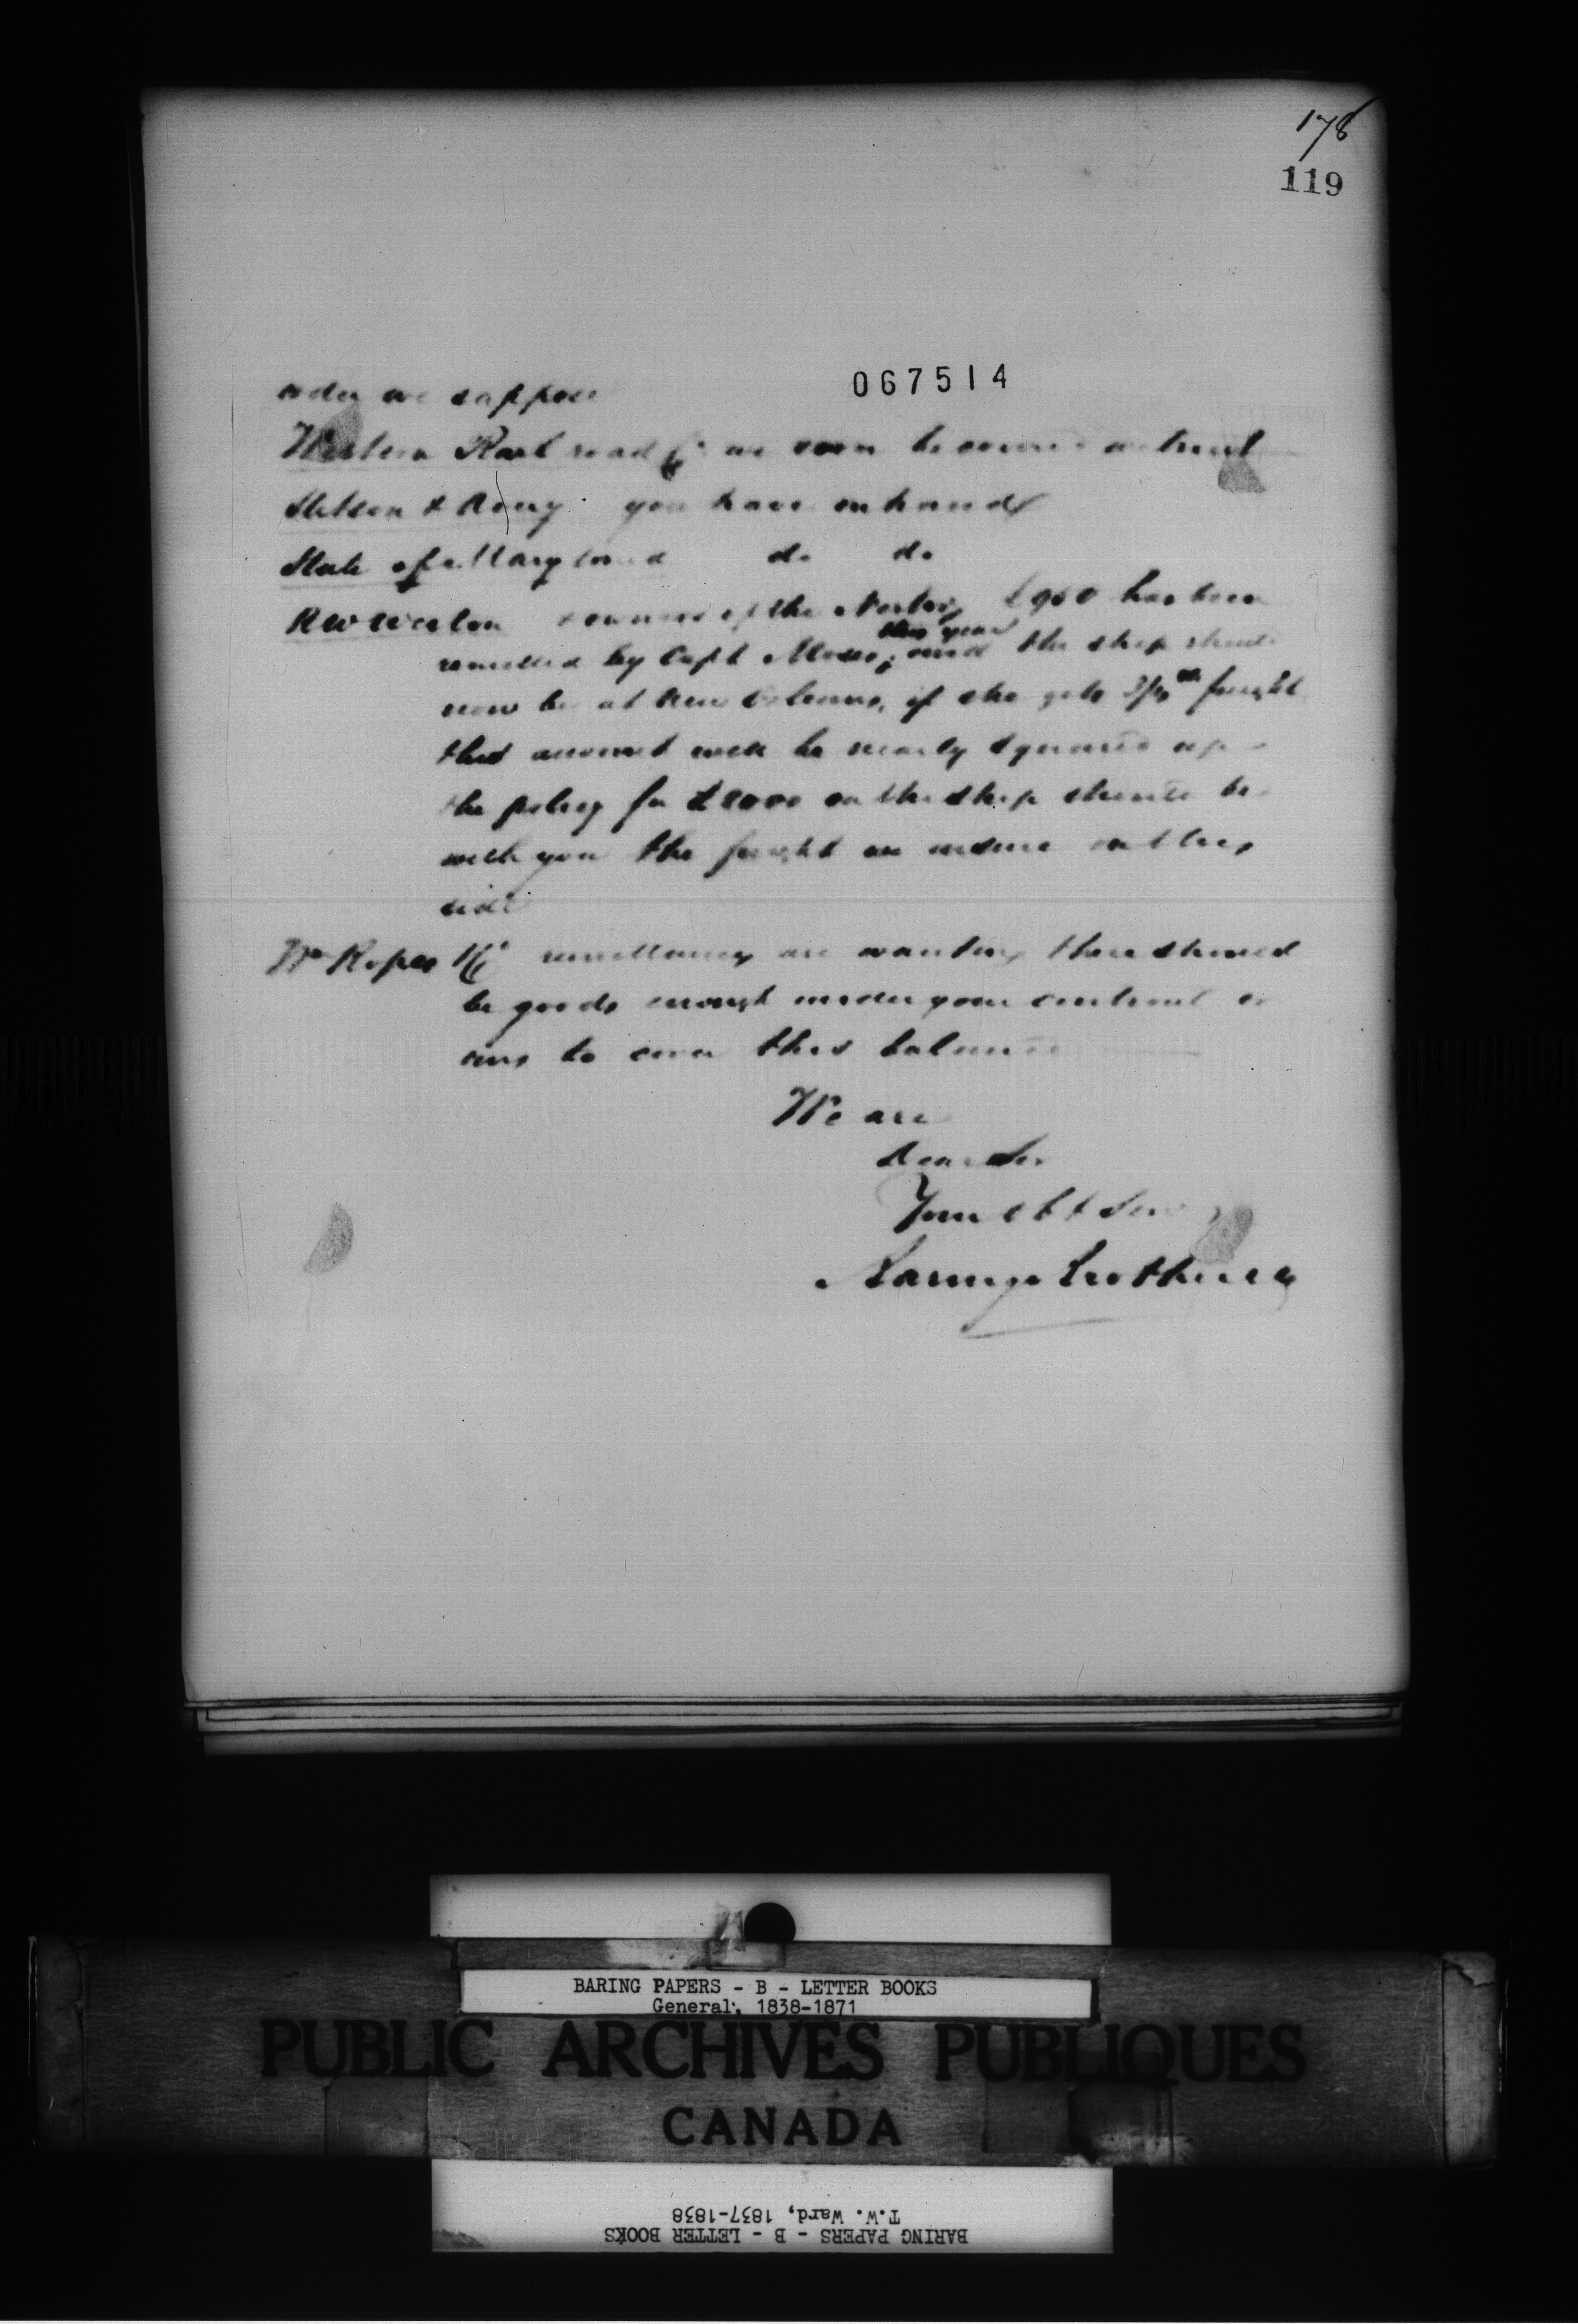 178
119
067514
order we suppose
Western Rail road Co we soon be covered we trust
Stetson & Avery you have on hand
State of Maryland do do
owners of the Nestor £960 has been
remitted by Capt Moses, this year and the ship should
now be at New Orleans, if she gets freight
this account will be nearly squared up
the policy for £2000 on the ship should be
with you the freight we insure on this
side
Wm Ropes & Co remittances are wanting there should
be goods enough under your control or
ours to cover this balance
We are
Dear Sir
Your obt Serv
Baring Brothers &
BARING PAPERS - B - LETTER BOOKS
General, 1838-1871
PUBLIC ARCHIVES PUBLIQUES
CANADA
BARING PAPERS - B - LETTER BOOKS
T.W. Ward, 1837-1838